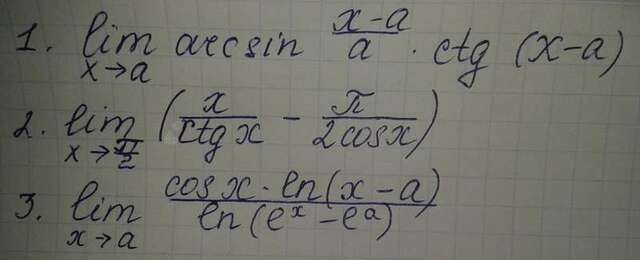 1. lim x→a arcsin (x-a)/a · ctg (x-a)
2. lim x→π/2 (x/ctgx - π/2cosx)
3. lim x→a cosx·ln(x-a)/ln(eˣ-eᵃ)